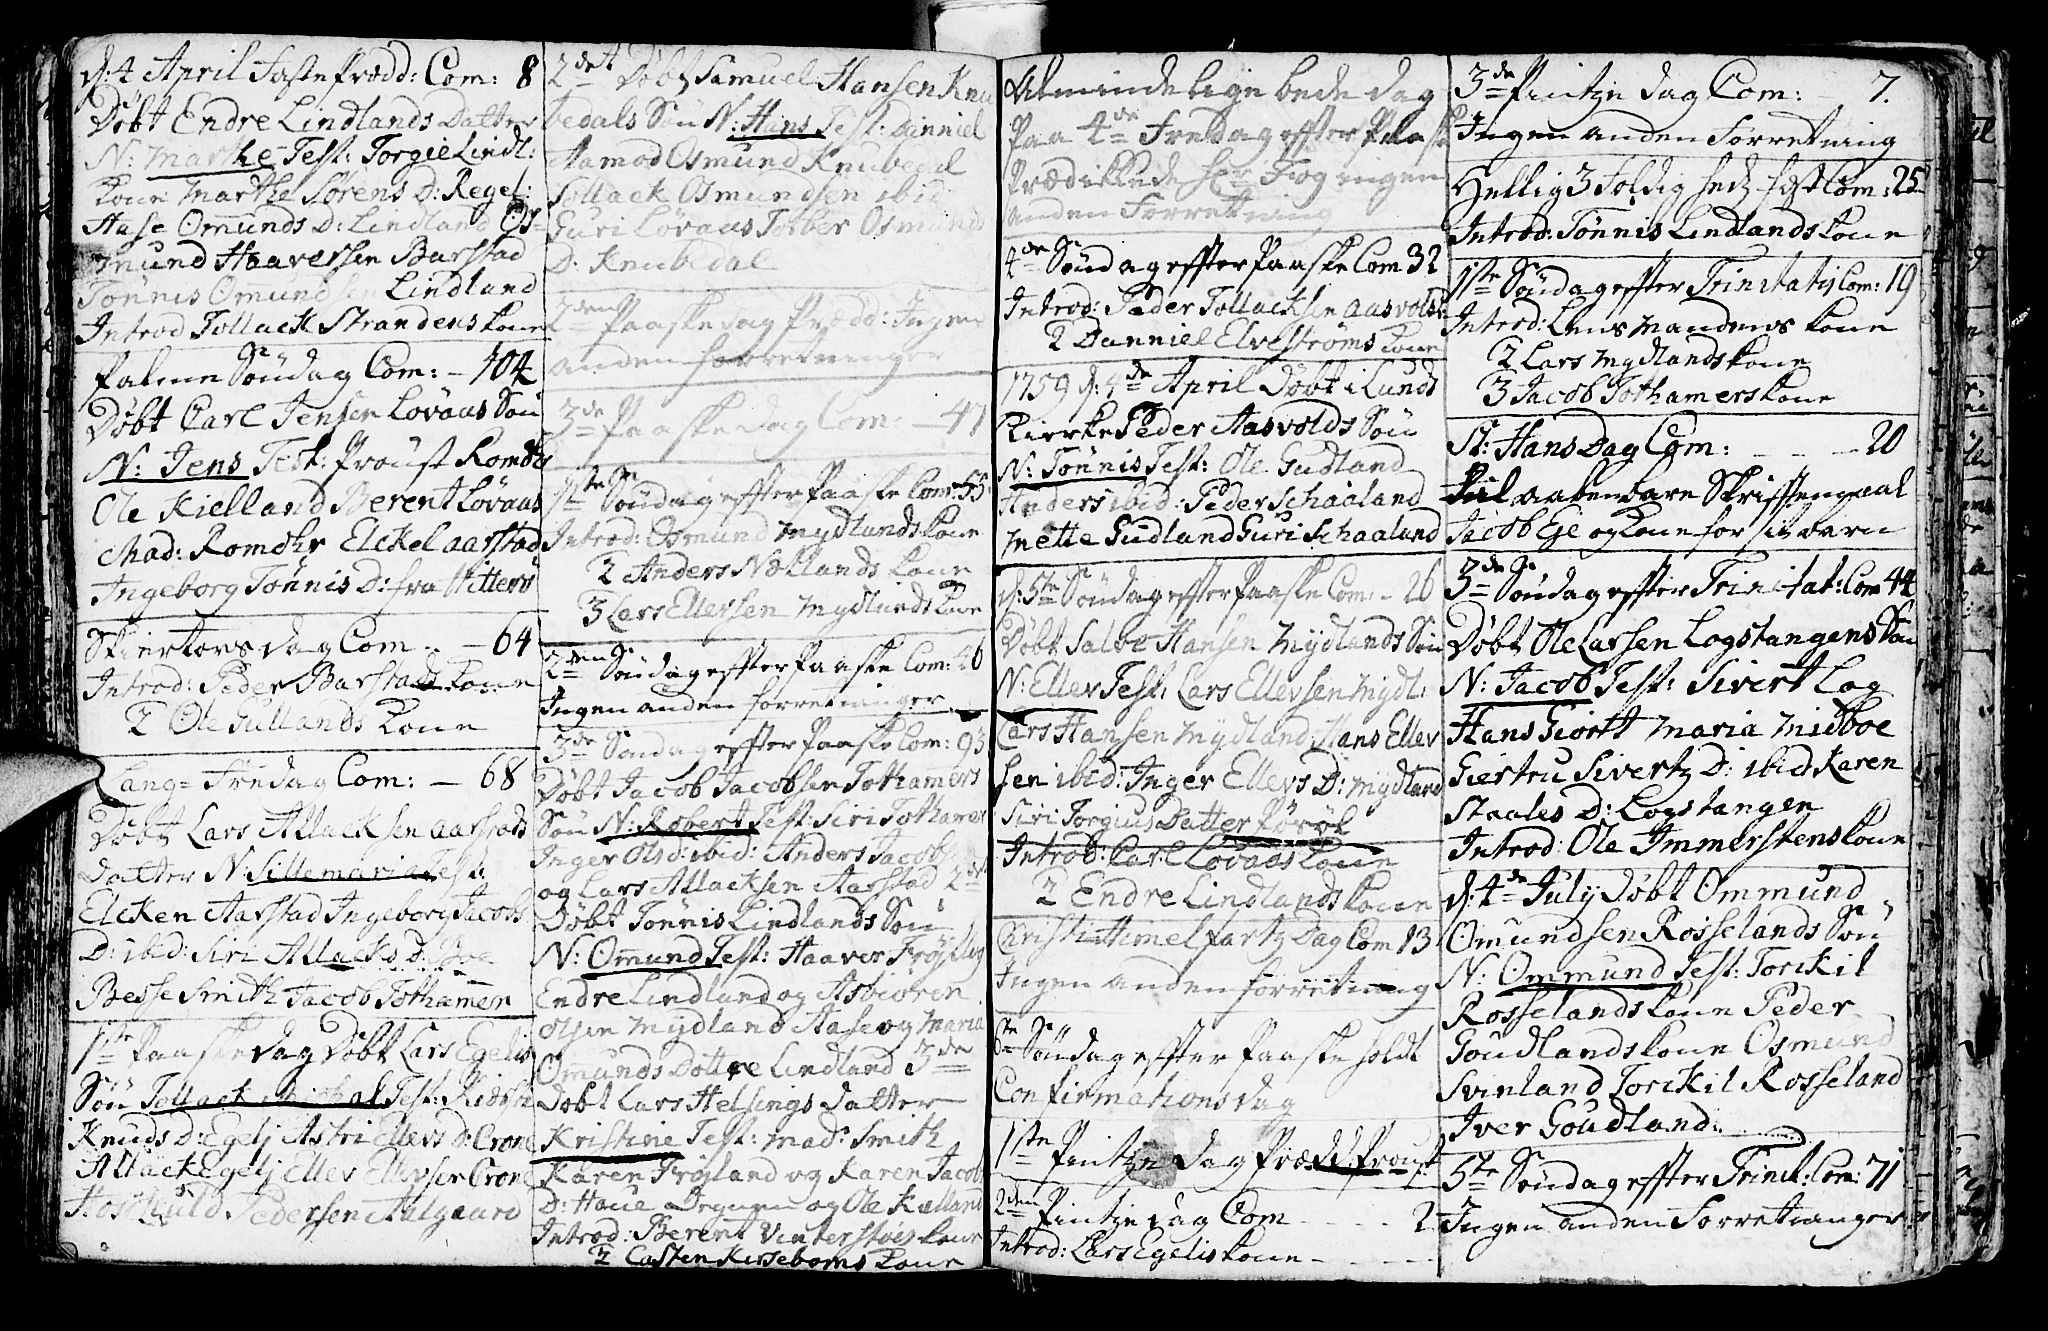 d: 4 April Faste Prædd: Com: 8
Døbt Endre Lindlands Datter
N: Marthe Test: Torgie Lindl:
Kone Marthe Sørens D: Regel:
Aase Omunds D: Lindland Os-
mund Haaversen Barstad
Tønnis Omundsen Lindland
Introd Tollack Strandens kone
Palme Søndag Com: - 104
Døbt Carl Jensen Lovaas Søn
N: Jens Test: Proust Romdhr
Ole Kielland Berent Lovaas
Mad: Romdhr Elckel aarstad
Ingeborg Tønnis D: fra Witters
Skiertorsdag Com - 64
Introd: Peder Barstads Kone
2 Ole Gullands Kone
Lang=Fredag Com: - 68
Døbt Lars Atlacksen aarstads
Datter N: Sillemaria Test:
Elcken Aarstad Ingeborg Jacobs
D: ibid: Siri Atlacks D: Boe
Besse Smith Jacob Tothamer
1ste Paaske dag Døbt Lars Egelis
Søn Tollack Michal Test:
Knuds D: Egelj Astri Ellevs D: Crone
Atlack Egelj Ellev Ellevsen Crone
Pedersen Aalgaard
2det Døbt Samuel Hansen Knu
bedals Søn N: Hans Test: Danniel
Hamod Osmund Knubedal
Tollack Osmundsen ibid
Guri Lovaas Torber Osmunds
D: Knubedal
2den Paaskedag Prædd: Ingen
anden forretninger
3de Paaskedag Com: - 47
1ste Søndag effter Paaske Com: 55
Introd: Osmund Mydlands kone
2 Anders Nællands kone
3 Lars Ellersen Mydlands kone
2den Søndag effter Paaske Com: 26
Ingen anden forretninger
3de Søndag effter Paaske Com: 93
Døbt Jacob Jacobsen Tothamers
Søn N: Robert Test: Siri Tothamer
Inger Ols D: ibid: Anders Jacobsen
og Lars Atlacksen Aarstad 2det
Døbt Tønnis Lindlands Søn
N: Omund Test: Haaver Frøjland
Endre Lindland og Asbiøren
Olsen Mydland Aase og Maria
Omunds Dottre Lindland 3de
Døbt Lars Helsings datter
Kristine Test: Mad: Smith
Karen Frøjland og Karen Jacobs
D: Haue Dreyer og Ole Kielland
Introd: Berent Vinterstøs kone
2 Casten Kirseboms kone
Almindelige bede dag
paa 4de Fredag effter Paaske
Prædikede Hr Fog ingen
anden Forretning
4de Søndag effter Paaske Com 32
Introd: Peder Tollacksen aasvolds
2 Danniel Elvestrøms kone
1759 d: 4de April Døbt i Lunds
Kierke Peder Aasvolds Søn
N: Tønnis Test: Ole Gudland
Anders ibid: Peder Schaaland
Mette Gudland Guri Schaaland
d: 5te Søndag effter Paaske Com: - 26
Døbt Salve Hansen Mydlands Søn
N: Ellev Test: Lars Ellevsen Mydl:
Lars Hansen Mydland Hans Ellev
sen ibid: Inger Ellevs D: Mydland
Siri Torgius Datter Rørok
Introd: Carl Lovaas kone
2 Endre Lindlands kone
Christi Himelfartz Dag Com 13
Ingen anden forretning
6te Søndag effter Paaske holdt
Confirmations dag
1ste Pintze dag Prædd: Proust
2den Pintze dag Com - - - 2
Introd: Lars Egelis kone - - -
3de Pintze dag Com: - 7.
Ingen anden Forretning
Hellig 3 foldig heds fest Com: 25
Introd: Tønnis Lindlands kone
1ste Søndag effter Trinitatis Com: 19
Introd: Lens Mandens kone
2 Lars Mydlands kone
3 Jacob Tothamers kone
St: Hans Dag Com: - - - 20
til aabenbare Skriftemaal
Jacob Eje og kone for sit barn
3de Søndag effter Trinitat: Com 44
Døbt Ole Larsen Logstangens Søn
N: Jacob Test: Sivert Log
Hans Giortt Maria Midboe
Giertru Sivertz D: ibid Karen
Staales D: Logstangen
Introd: Ole Immerstens kone
d: 4de July Døbt Ommund
Omundsen Rosselands Søn
N: Ommund Test: Torckil
Rosselands kone Peder
Goudlands kone Osmund
Svinland Torckil Rosseland
Iver Goudland.
5te Søndag effter Trinit: Com: 71
Ingen anden Forretninger